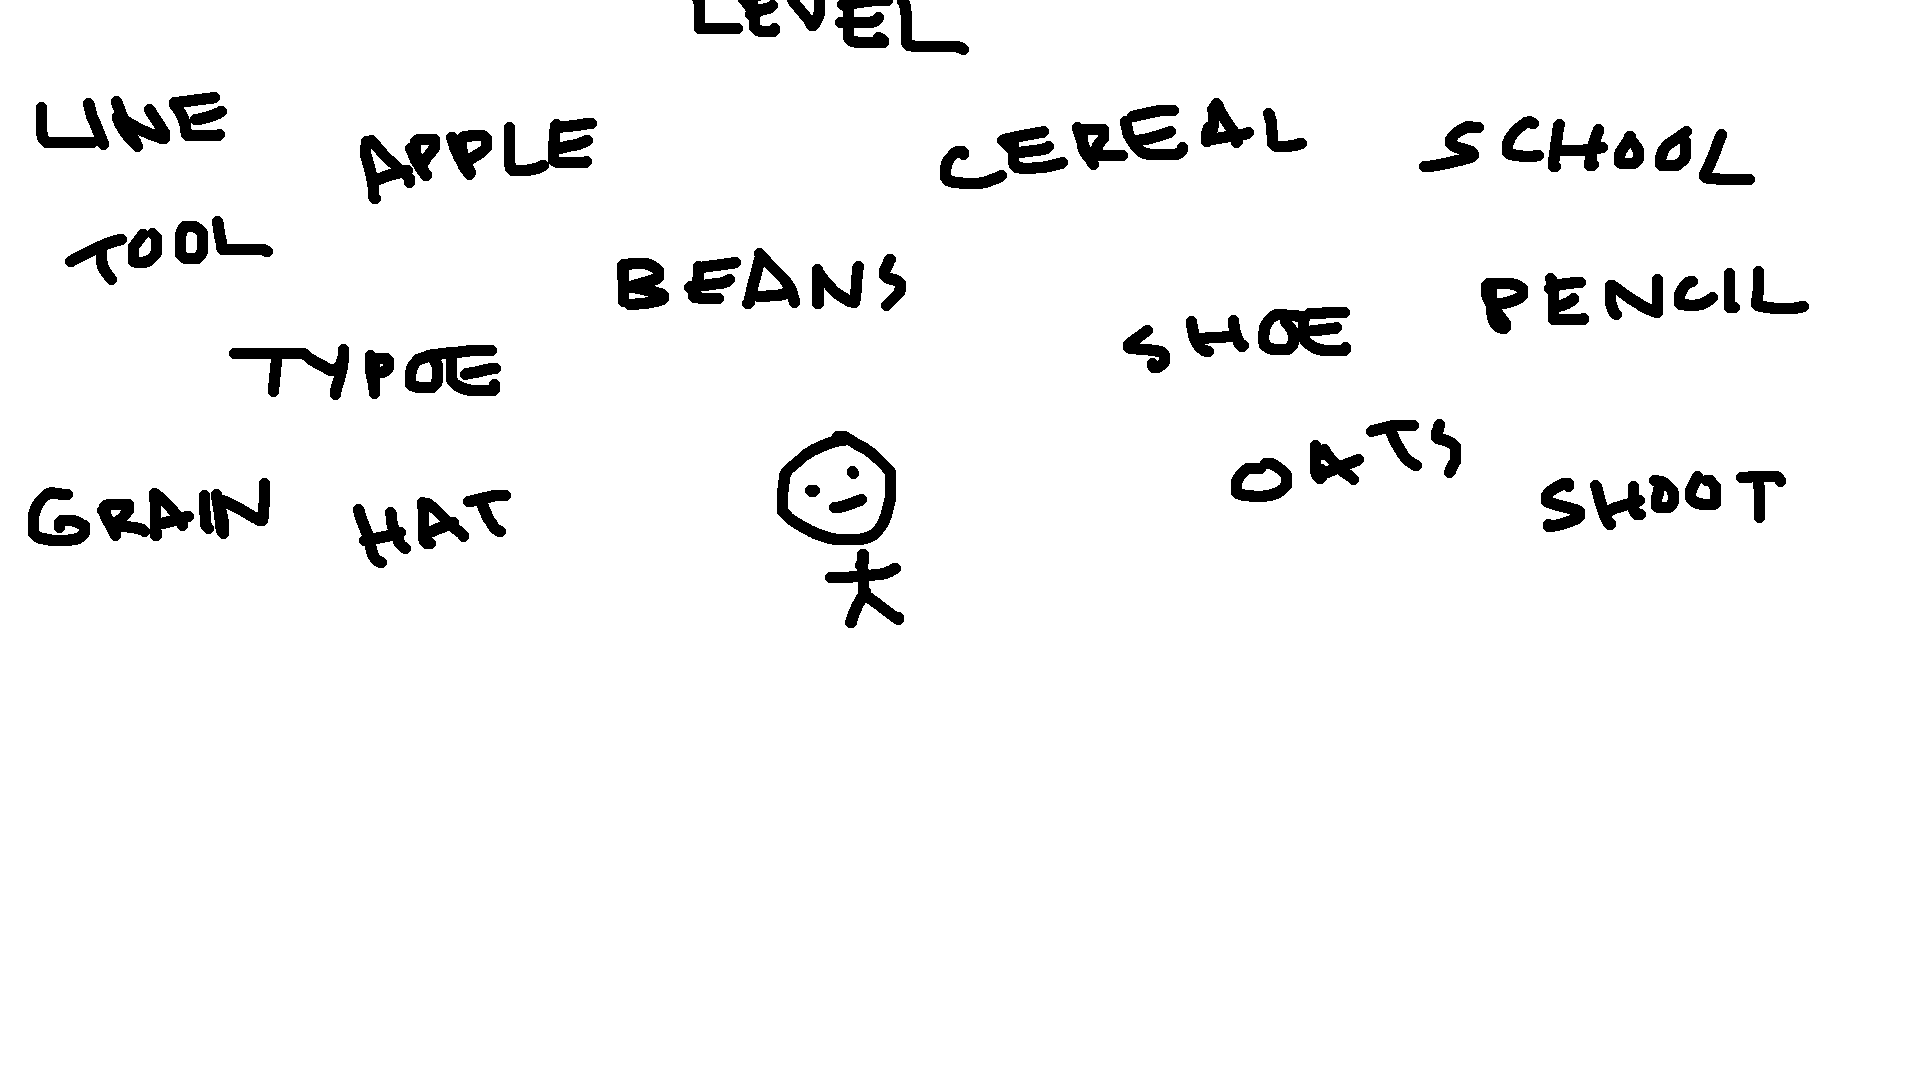 LEVEL
LINE APPLE CEREAL SCHOOL
TOOL BEANS PENCIL
TYPOE SHOE
GRAIN HAT OATS SHOOT